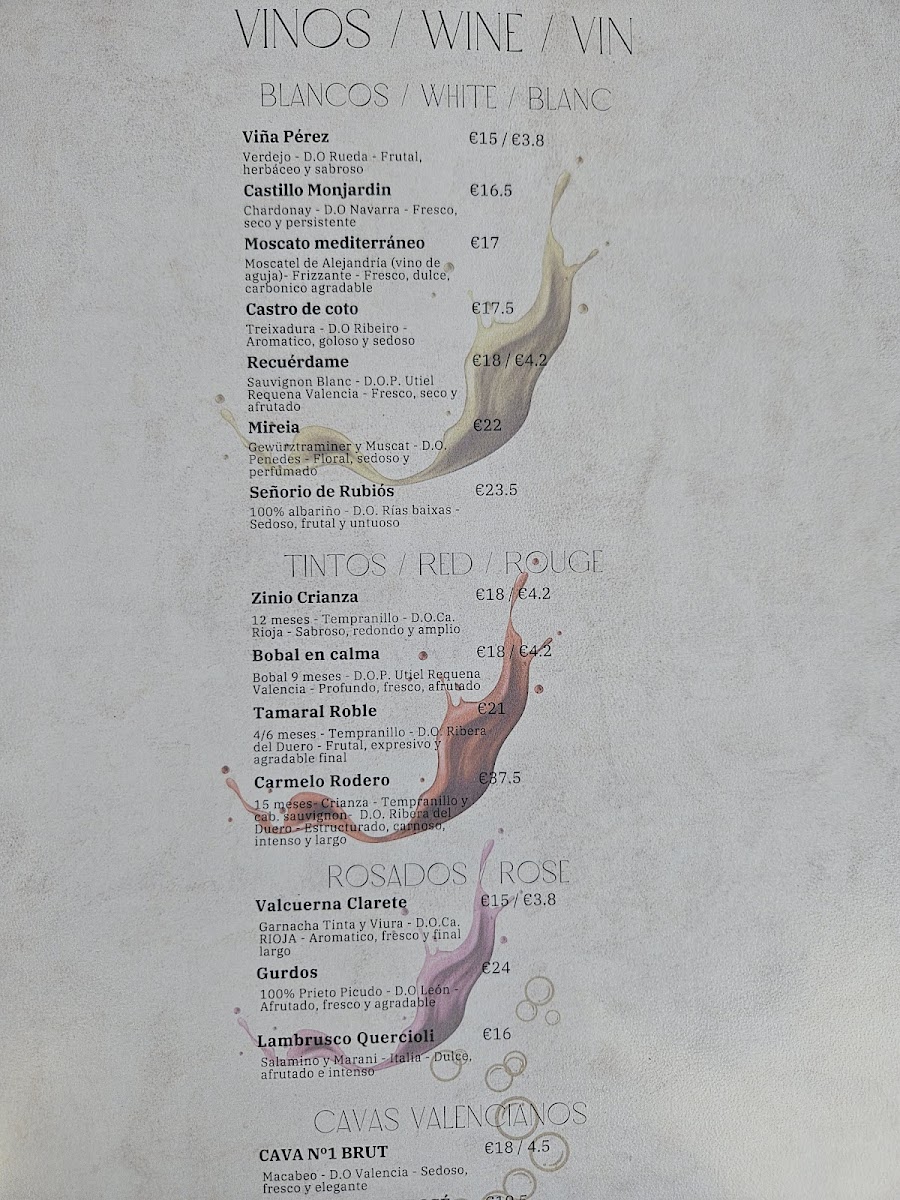 VINOS / WINE / VIN
BLANCOS / WHITE / BLANC
Viña Pérez €15 / €3.8
Verdejo - D.O Rueda - Frutal,
herbáceo y sabroso
Castillo Monjardin €16.5
Chardonay - D.O Navarra - Fresco,
seco y persistente
Moscato mediterráneo €17
Moscatel de Alejandría (vino de
aguja)- Frizzante - Fresco, dulce,
carbonico agradable
Castro de coto €17.5
Treixadura - D.O Ribeiro -
Aromatico, goloso y sedoso
Recuérdame €18 / €4.2
Sauvignon Blanc - D.O.P. Utiel
Requena Valencia - Fresco, seco y
afrutado
Mireia €22
Gewürztraminer y Muscat - D.O.
Penedes - Floral, sedoso y
perfumado
Señorio de Rubiós €23.5
100% albariño - D.O. Rías baixas -
Sedoso, frutal y untuoso
TINTOS / RED / ROUGE
Zinio Crianza €18 / €4.2
12 meses - Tempranillo - D.O.Ca.
Rioja - Sabroso, redondo y amplio
Bobal en calma €18 / €4.2
Bobal 9 meses - D.O.P. Utiel Requena
Valencia - Profundo, fresco, afrutado
Tamaral Roble €21
4/6 meses - Tempranillo - D.O. Ribera
del Duero - Frutal, expresivo y
agradable final
Carmelo Rodero €37.5
15 meses- Crianza - Tempranillo y
cab. sauvignon- D.O. Ribera del
Duero - Estructurado, carnoso,
intenso y largo
ROSADOS / ROSE
Valcuerna Clarete €15 / €3.8
Garnacha Tinta y Viura - D.O.Ca.
RIOJA - Aromatico, fresco y final
largo
Gurdos €24
100% Prieto Picudo - D.O León -
Afrutado, fresco y agradable
Lambrusco Quercioli €16
Salamino y Marani - Italia - Dulce,
afrutado e intenso
CAVAS VALENCIANOS
CAVA Nº1 BRUT €18 / 4.5
Macabeo - D.O Valencia - Sedoso,
fresco y elegante